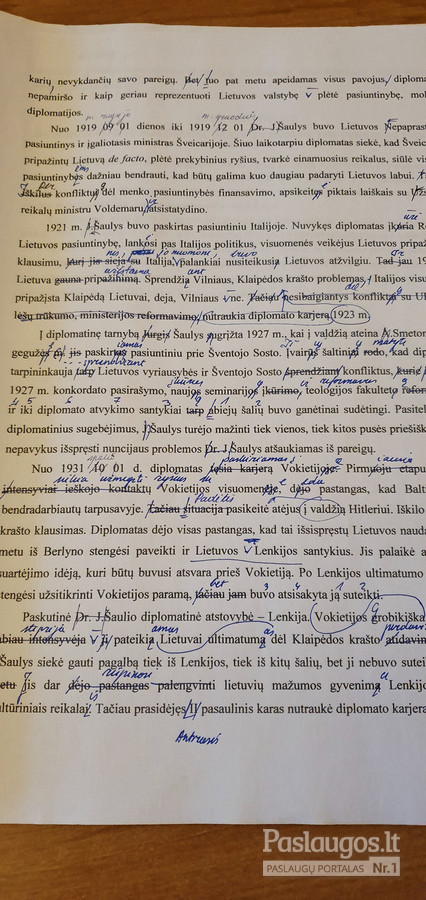 karių nevykdančių savo pareigų. Bet tuo pat metu apeidamas visus pavojus, diploma
nepamiršo ir kaip geriau reprezentuoti Lietuvos valstybę plėtė pasiuntinybę, mo
diplomatijos.
Nuo 1919 09 01 dienos iki 1919 12 01 Dr. J. Šaulys buvo Lietuvos Nepaprast
pasiuntinys ir įgaliotasis ministras Šveicarijoje. Šiuo laikotarpiu diplomatas siekė, kad Šveic
pripažintų Lietuvą de facto, plėtė prekybinius ryšius, tvarkė einamuosius reikalus, siūlė vis
pasiuntinybės dažniau bendrauti, kad būtų galima kuo daugiau padaryti Lietuvos labui.
Iškilus konfliktų dėl menko pasiuntinybės finansavimo, apsikeitęs piktais laiškais su
reikalų ministru Voldemaru, atsistatydino.
1921 m. J. Šaulys buvo paskirtas pasiuntiniu Italijoje. Nuvykęs diplomatas įkūrė R
Lietuvos pasiuntinybę, lankėsi pas Italijos politikus, visuomenės veikėjus Lietuvos pripaž
klausimu, kurį jis sieja su Italija, palankiai nusiteikusia Lietuvos atžvilgiu. Tad jau 19
Lietuva gauna pripažinimą. Sprendžia Vilniaus, Klaipėdos krašto problemas, Italijos vis
pripažįsta Klaipėda Lietuvai, deja, Vilniaus ne. Tačiau nesibaigiantys konfliktai su U
lėšų trūkumo, ministerijos reformavimo, nutraukia diplomato karjerą 1923 m.
Į diplomatinę tarnybą Jurgis Šaulys sugrįžta 1927 m., kai į valdžią ateina A. Smeton
gegužės jis paskiriamas pasiuntiniu prie Šventojo Sosto. Įvairūs šaltiniai rodo, kad dip
tarpininkauja tarp Lietuvos vyriausybės ir Švento Sosto sprendžiant konfliktus, kurie
1927 m. konkordato pasirašymo, naujos seminarijos įkūrimo, teologijos fakulteto refor
ir iki diplomato atvykimo santykiai tarp abiejų šalių buvo ganėtinai sudėtingi. Pasitel
diplomatinius sugebėjimus, J. Šaulys turėjo mažinti tiek vienos, tiek kitos pusės priešišk
nepavykus išspręsti nuncijaus problemos Dr. J. Šaulys atšaukiamas iš pareigų.
Nuo 1931 10 01 d. diplomatas tęsia karjerą Vokietijoje. Pirmuoju etapu
intensyviai ieškojo kontaktų Vokietijos visuomenėje, dėjo pastangas, kad Balt
bendradarbiautų tarpusavyje. Tačiau situacija pasikeitė atėjus į valdžią Hitleriui. Iškilo
krašto klausimas. Diplomatas dėjo visas pastangas, kad tai išsispręstų Lietuvos nauda
metu iš Berlyno stengėsi paveikti ir Lietuvos Lenkijos santykius. Jis palaikė a
suartėjimo idėją, kuri būtų buvusi atsvara prieš Vokietiją. Po Lenkijos ultimatumo
stengėsi užsitikrinti Vokietijos paramą, tačiau jam buvo atsisakyta ją suteikti.
Paskutinė Dr. J. Šaulio atstovybė – Lenkija. Vokietijos grobikiška
labiau intensyvėja ir pateikia Lietuvai ultimatumą dėl Klaipėdos krašto atidavim
Šaulys siekė gauti pagalbą tiek iš Lenkijos, tiek iš kitų šalių, bet ji nebuvo sutei
metu jis dar dėjo pastangas palengvinti lietuvių mažumos gyvenimą Lenkijo
kultūriniais reikalai. Tačiau prasidėjęs II pasaulinis karas nutraukė diplomato karjerą
Antrasis
Paslaugos.lt
PASLAUGŲ PORTALAS Nr.1